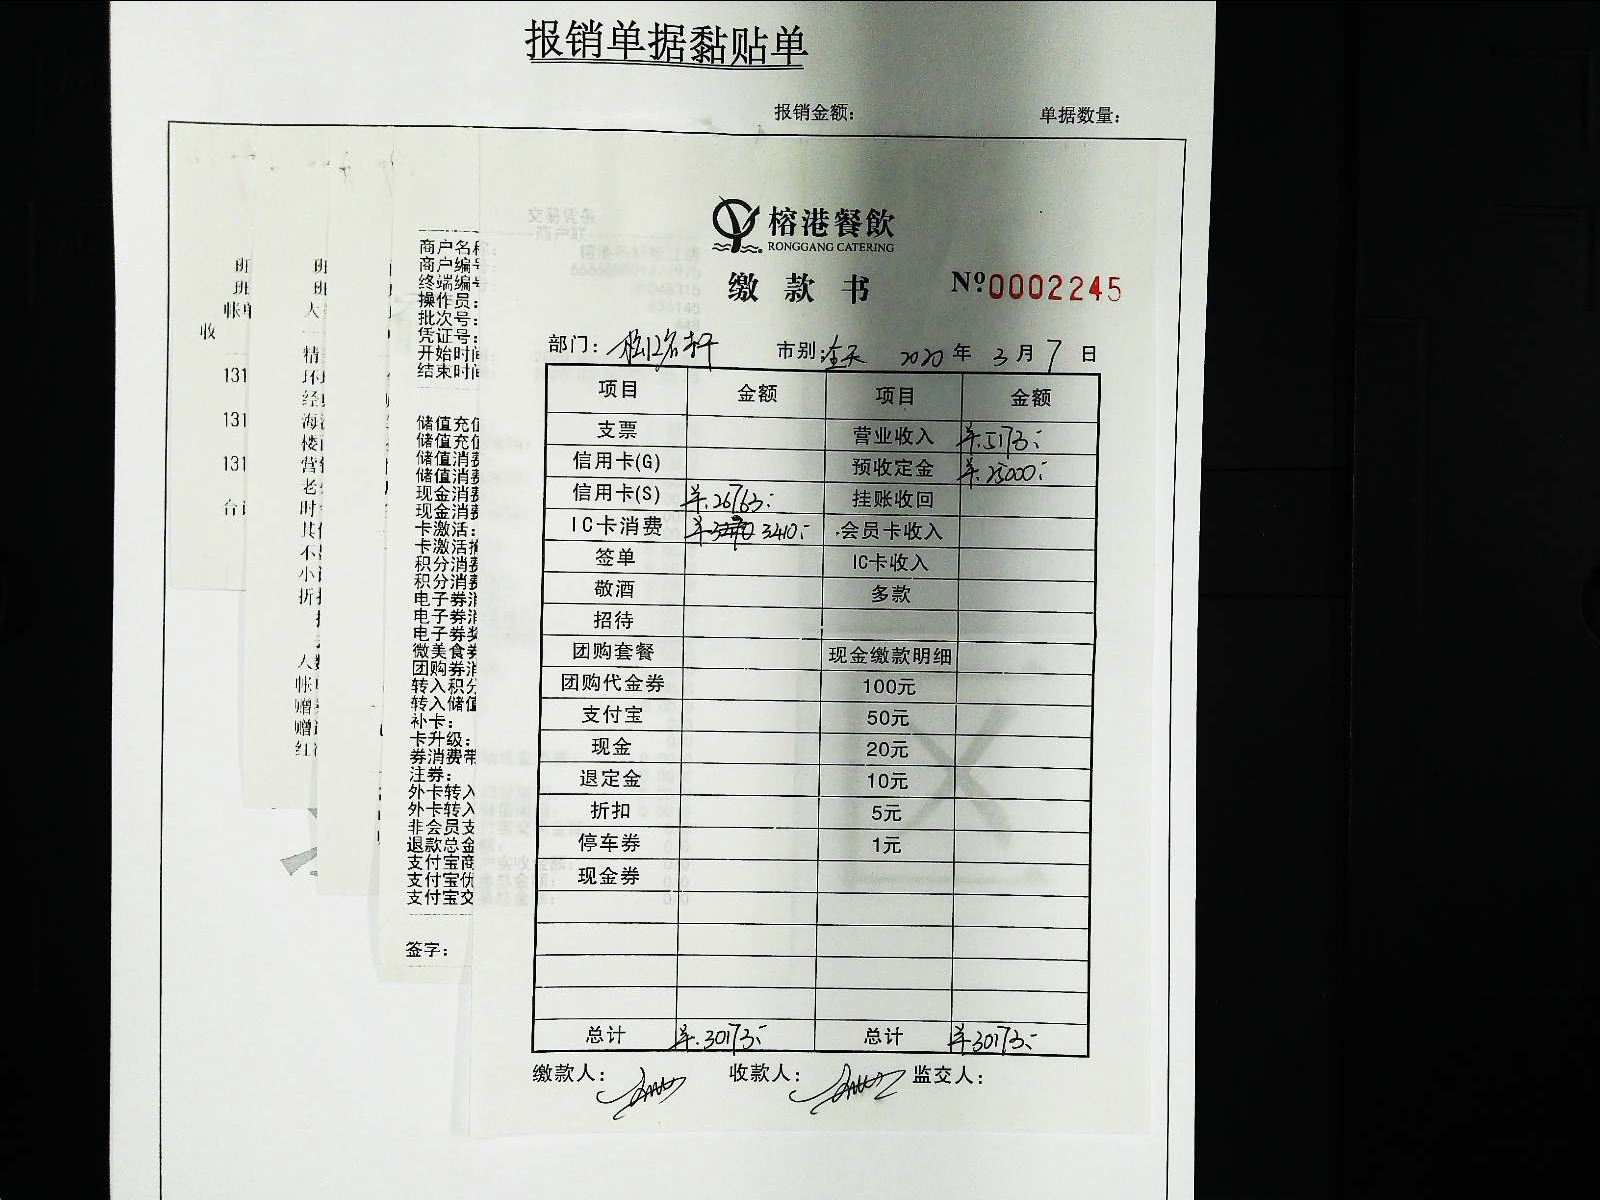 报销单据黏贴单
报销金额： 单据数量：
榕港餐飲
RONGGANG CATERING
缴款书 Nº0002245
部门： 市别：全天 2020年3月7日
项目 金额 项目 金额
支票 营业收入 ¥.5173:-
信用卡(G) 预收定金 ¥.25000:-
信用卡(S) ¥.26763:- 挂账收回
IC卡消费 3410:- 会员卡收入
签单 IC卡收入
敬酒 多款
招待
团购套餐 现金缴款明细
团购代金券 100元
支付宝 50元
现金 20元
退定金 10元
折扣 5元
停车券 1元
现金券
总计 ¥.30173:- 总计 ¥30173:-
缴款人： 收款人： 监交人：
商户名称:
商户编号
终端编号
操作员:
批次号:
凭证号:
开始时间
结束时间
储值充值
储值充值
储值消费
储值消费
现金消费
现金消费
卡激活:
卡激活
积分消费
积分消费
电子券消
电子券消
电子券奖
微美食券
团购券消
转入积分
转入储值
补卡:
卡升级:
券消费带
注券:
外卡转入
外卡转入
非会员支
退款总金
支付宝商
支付宝优
支付宝交
签字:
班
班
帐单
收
131
131
131
合计
班
班
精
环
经
海
楼
营
老
时
其
不
小
折
人数
帐
赠
赠
红